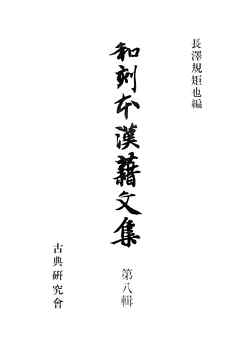 長澤規矩也編
和刻本漢籍文集
第八輯
古典硏究會